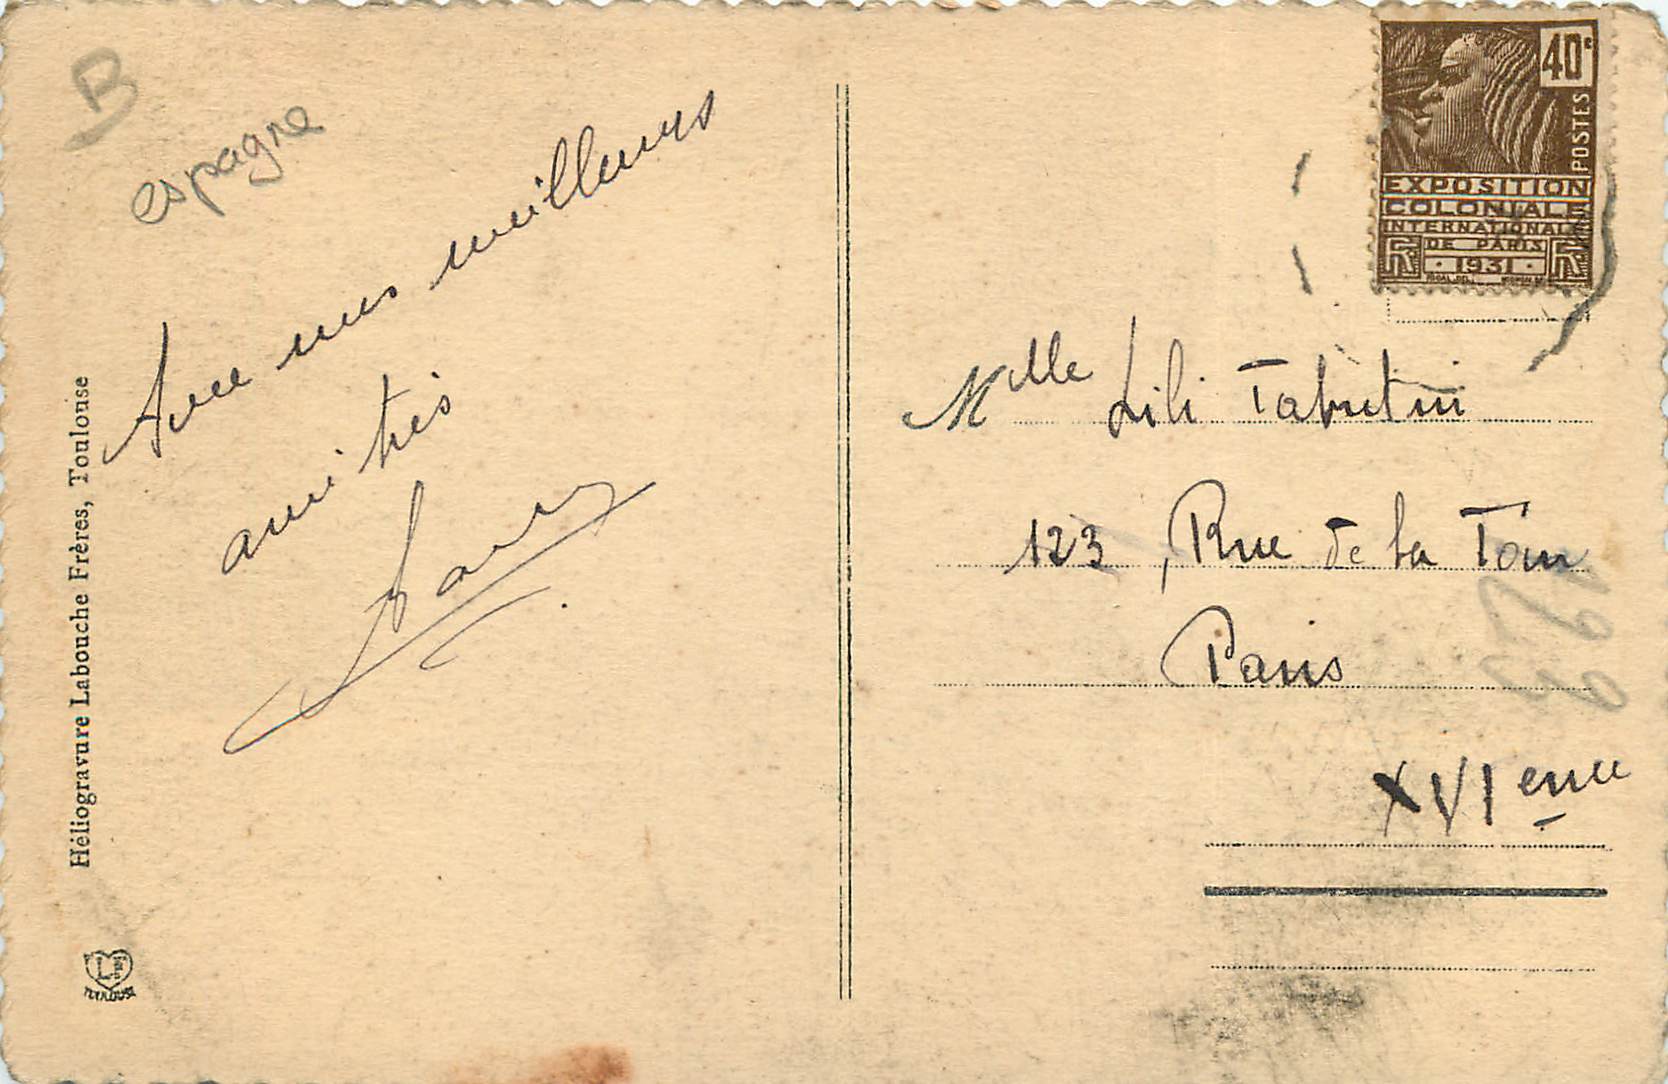 B
espagne
Avec mes meilleurs
amitiés
Héliogravure Labouche Frères, Toulouse
LF
TOULOUSE
40c
POSTES
EXPOSITION
COLONIALE
INTERNATIONALE
DE PARIS
RF
1931
RF
Mlle Lili Tabutin
123, Rue de la Tour
Paris
XVIeme